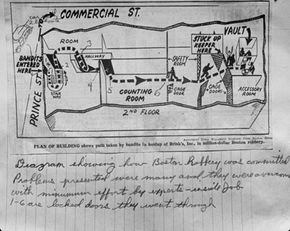 COMMERCIAL ST.
VAULT
ROOM
STUCK UP
KEEPER
HERE
BANDITS
ENTERED
HERE
HALLWAY
SAFETY
ROOM
PRINCE ST.
COUNTING
ROOM
CAGE
DOOR
CAGE
DOORS
ACCESSORY
ROOM
2ND FLOOR
PLAN OF BUILDING shows path taken by bandits in holdup of Brink's, Inc., in million-dollar Boston robbery.
Diagram showing how Boston Robbery was committed
Problems presented were many and they were overcome
with minimum effort by experts - inside job
1-6 are locked doors they went through